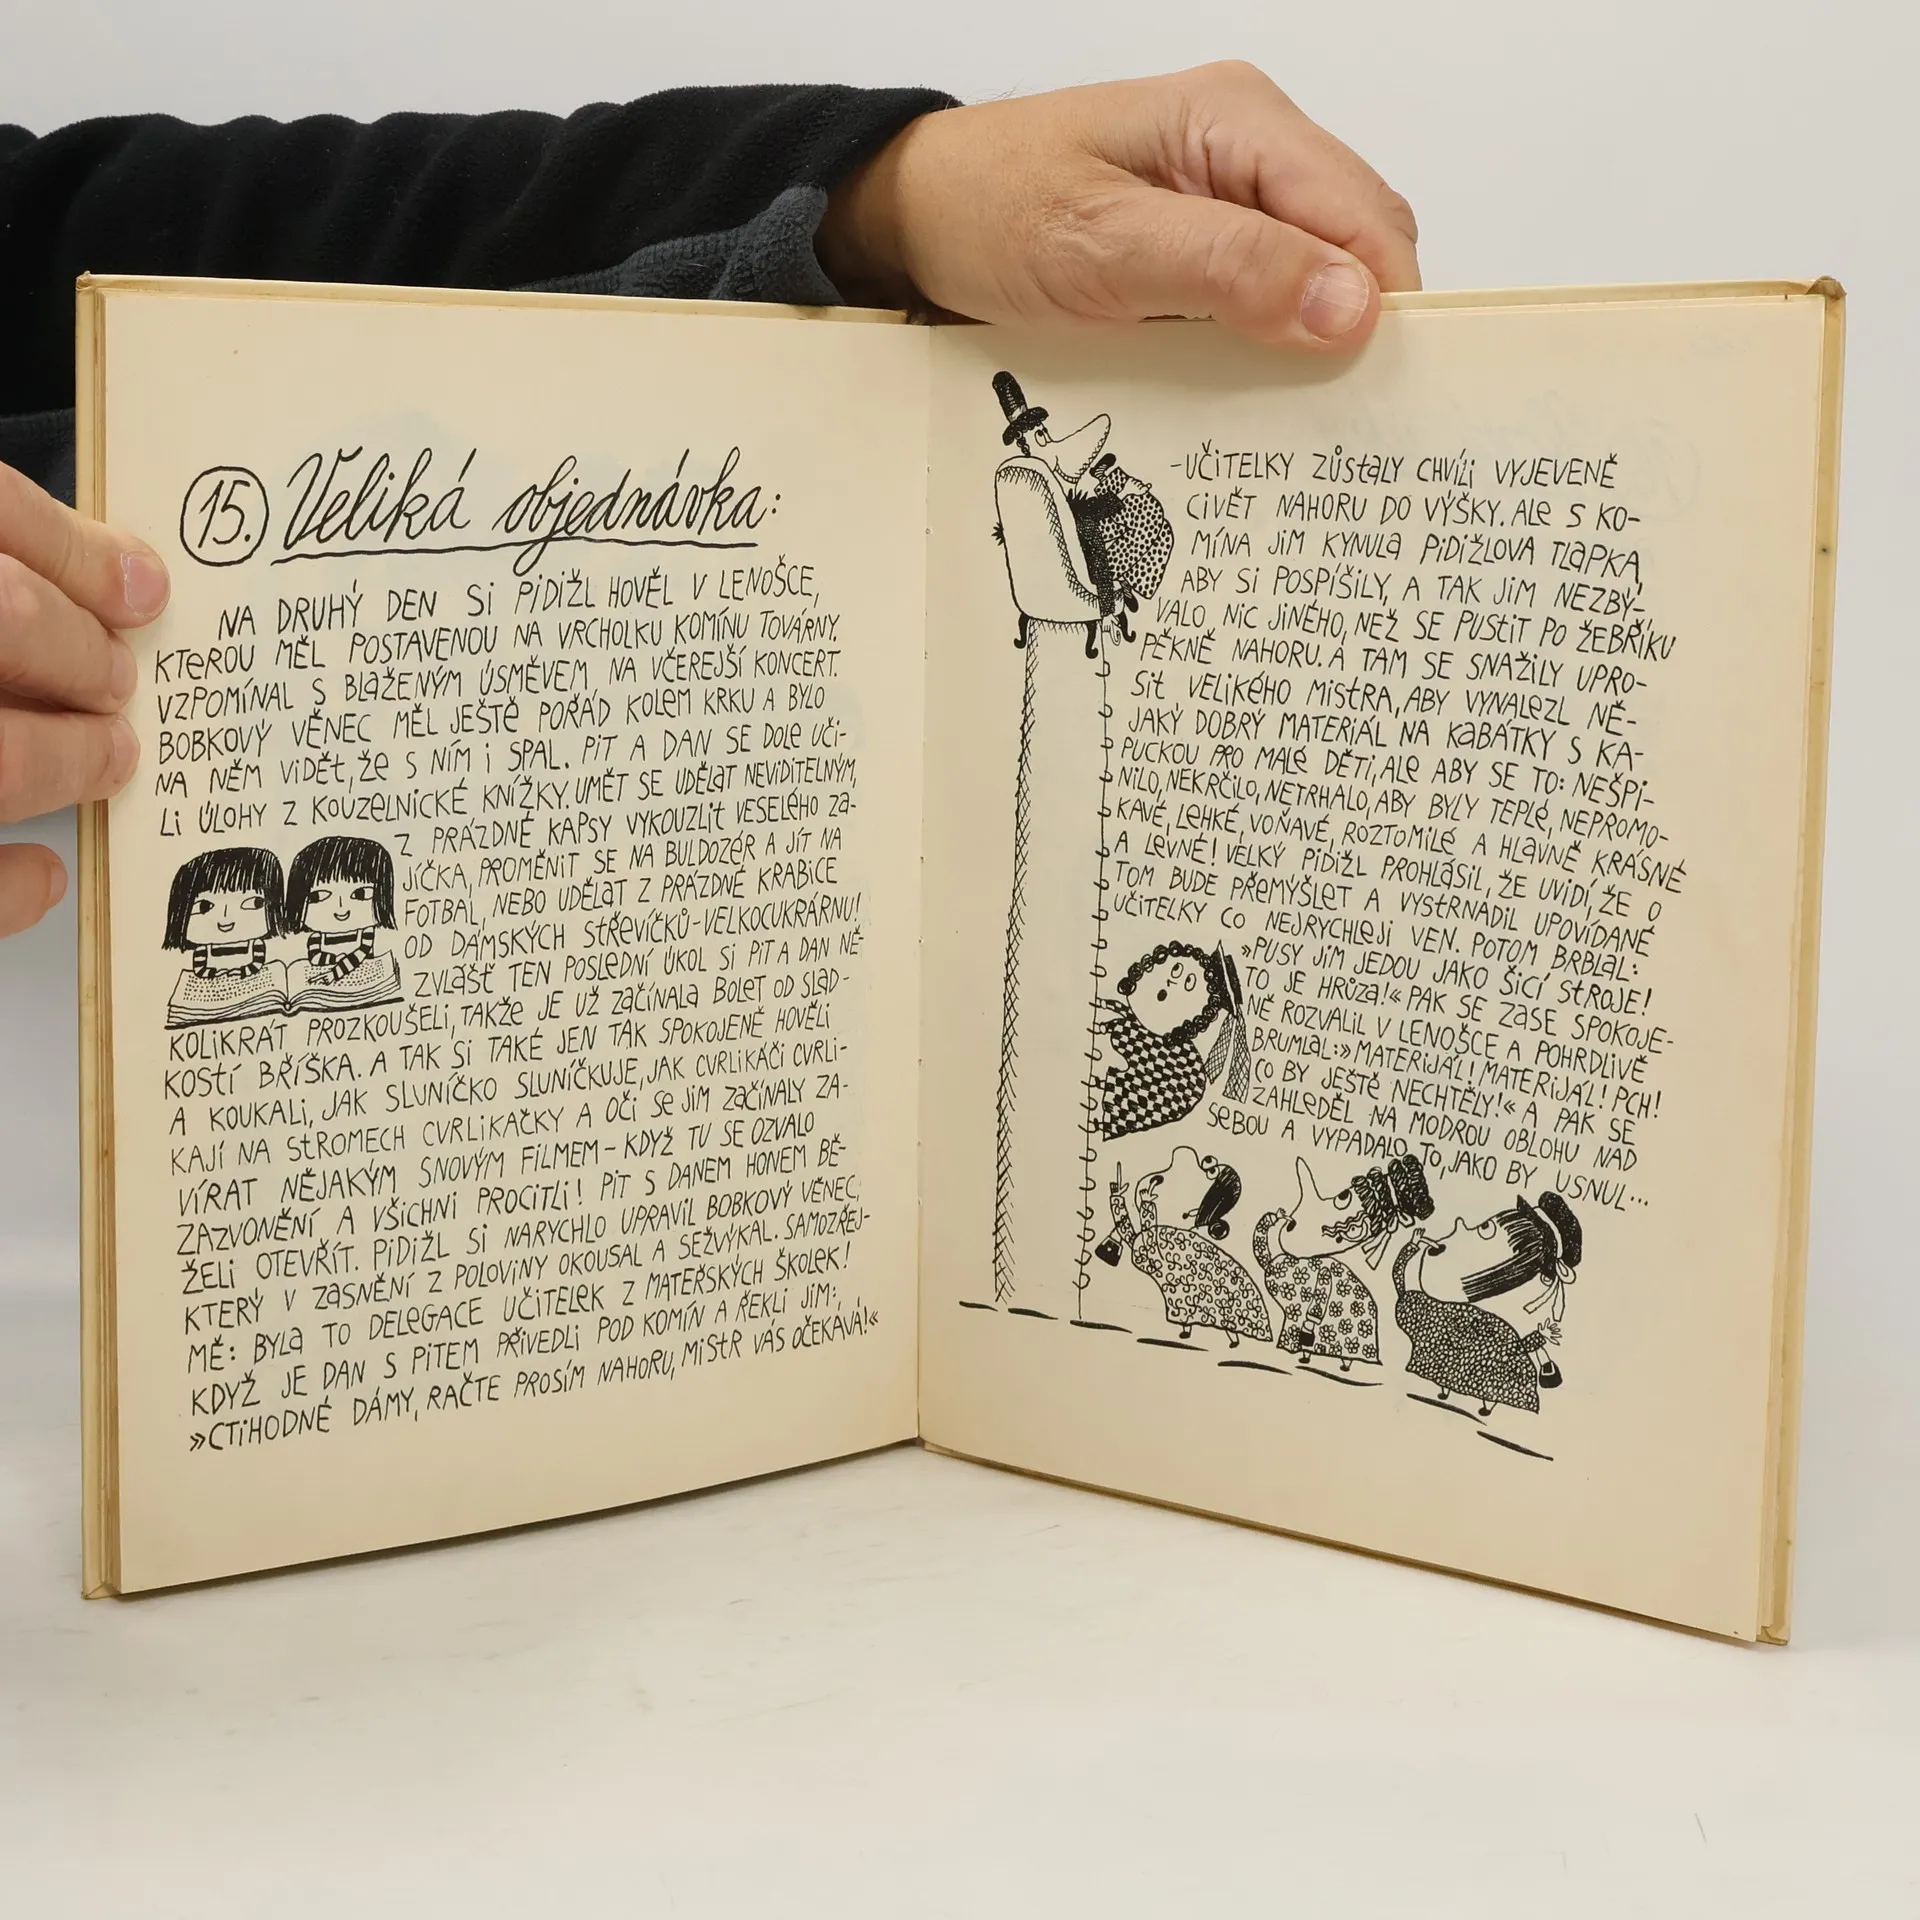 15. Veliká objednávka:
NA DRUHÝ DEN SI PIDIŽL HOVĚL V LENOŠCE,
KTEROU MĚL POSTAVENOU NA VRCHOLKU KOMÍNU TOVÁRNY.
VZPOMÍNAL S BLAŽENÝM ÚSMĚVEM NA VČEREJŠÍ KONCERT.
BOBKOVÝ VĚNEC MĚL JEŠTĚ POŘÁD KOLEM KRKU A BYLO
NA NĚM VIDĚT, ŽE S NÍM I SPAL. PIT A DAN SE DOLE UČI-
LI ÚLOHY Z KOUZELNICKÉ KNÍŽKY. UMĚT SE UDĚLAT NEVIDITELNÝM,
Z PRÁZDNÉ KAPSY VYKOUZLIT VESELÉHO ZA-
JÍČKA, PROMĚNIT SE NA BULDOZÉR A JÍT NA
FOTBAL, NEBO UDĚLAT Z PRÁZDNÉ KRABICE
OD DÁMSKÝCH STŘEVÍČKŮ-VELKOCUKRÁRNU!
ZVLÁŠŤ TEN POSLEDNÍ ÚKOL SI PIT A DAN NĚ-
KOLIKRÁT PROZKOUŠELI, TAKŽE JE UŽ ZAČÍNALA BOLET OD SLAD-
KOSTÍ BŘÍŠKA. A TAK SI TAKÉ JEN TAK SPOKOJENĚ HOVĚLI
A KOUKALI, JAK SLUNÍČKO SLUNÍČKUJE, JAK CVRLIKÁČI CVRLI-
KAJÍ NA STROMECH CVRLIKAČKY A OČI SE JIM ZAČÍNALY ZA-
VÍRAT NĚJAKÝM SNOVÝM FILMEM - KDYŽ TU SE OZVALO
ZAZVONĚNÍ A VŠICHNI PROCITLI! PIT S DANEM HONEM BĚ-
ŽELI OTEVŘÍT. PIDIŽL SI NARYCHLO UPRAVIL BOBKOVÝ VĚNEC,
KTERÝ V ZASNĚNÍ Z POLOVINY OKOUSAL A SEŽVÝKAL. SAMOZŘEJ-
MĚ: BYLA TO DELEGACE UČITELEK Z MATEŘSKÝCH ŠKOLEK!
KDYŽ JE DAN S PITEM PŘIVEDLI POD KOMÍN A ŘEKLI JIM:
»CTIHODNÉ DÁMY, RAČTE PROSÍM NAHORU, MISTR VÁS OČEKÁVÁ!«
-UČITELKY ZŮSTALY CHVÍLI VYJEVENĚ
CIVĚT NAHORU DO VÝŠKY. ALE S KO-
MÍNA JIM KYNULA PIDIŽLOVA TLAPKA,
ABY SI POSPÍŠILY, A TAK JIM NEZBÝ-
VALO NIC JINÉHO, NEŽ SE PUSTIT PO ŽEBŘÍKU
PĚKNĚ NAHORU. A TAM SE SNAŽILY UPRO-
SIT VELIKÉHO MISTRA, ABY VYNALEZL NĚ-
JAKÝ DOBRÝ MATERIÁL NA KABÁTKY S KA-
PUCKOU PRO MALÉ DĚTI, ALE ABY SE TO: NEŠPI-
NILO, NEKRČILO, NETRHALO, ABY BYLY TEPLÉ, NEPROMO-
KAVÉ, LEHKÉ, VOŇAVÉ, ROZTOMILÉ A HLAVNĚ KRÁSNÉ
A LEVNÉ! VELKÝ PIDIŽL PROHLÁSIL, ŽE UVIDÍ, ŽE O
TOM BUDE PŘEMÝŠLET A VYSTRNADIL UPOVÍDANÉ
UČITELKY CO NEJRYCHLEJI VEN. POTOM BRBLAL:
»PUSY JIM JEDOU JAKO ŠICÍ STROJE!
TO JE HRŮZA!« PAK SE ZASE SPOKOJE-
NĚ ROZVALIL V LENOŠCE A POHRDLIVĚ
BRUMLAL: »MATERIJÁL! MATERIJÁL! PCH!
CO BY JEŠTĚ NECHTĚLY!« A PAK SE
ZAHLEDĚL NA MODROU OBLOHU NAD
SEBOU A VYPADALO TO, JAKO BY USNUL...